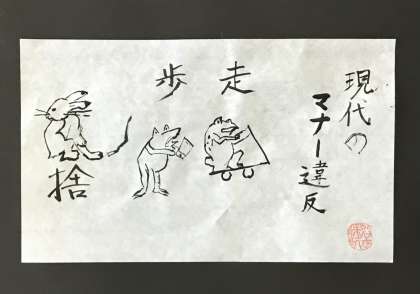 現代の
マナー違反
走
歩
捨